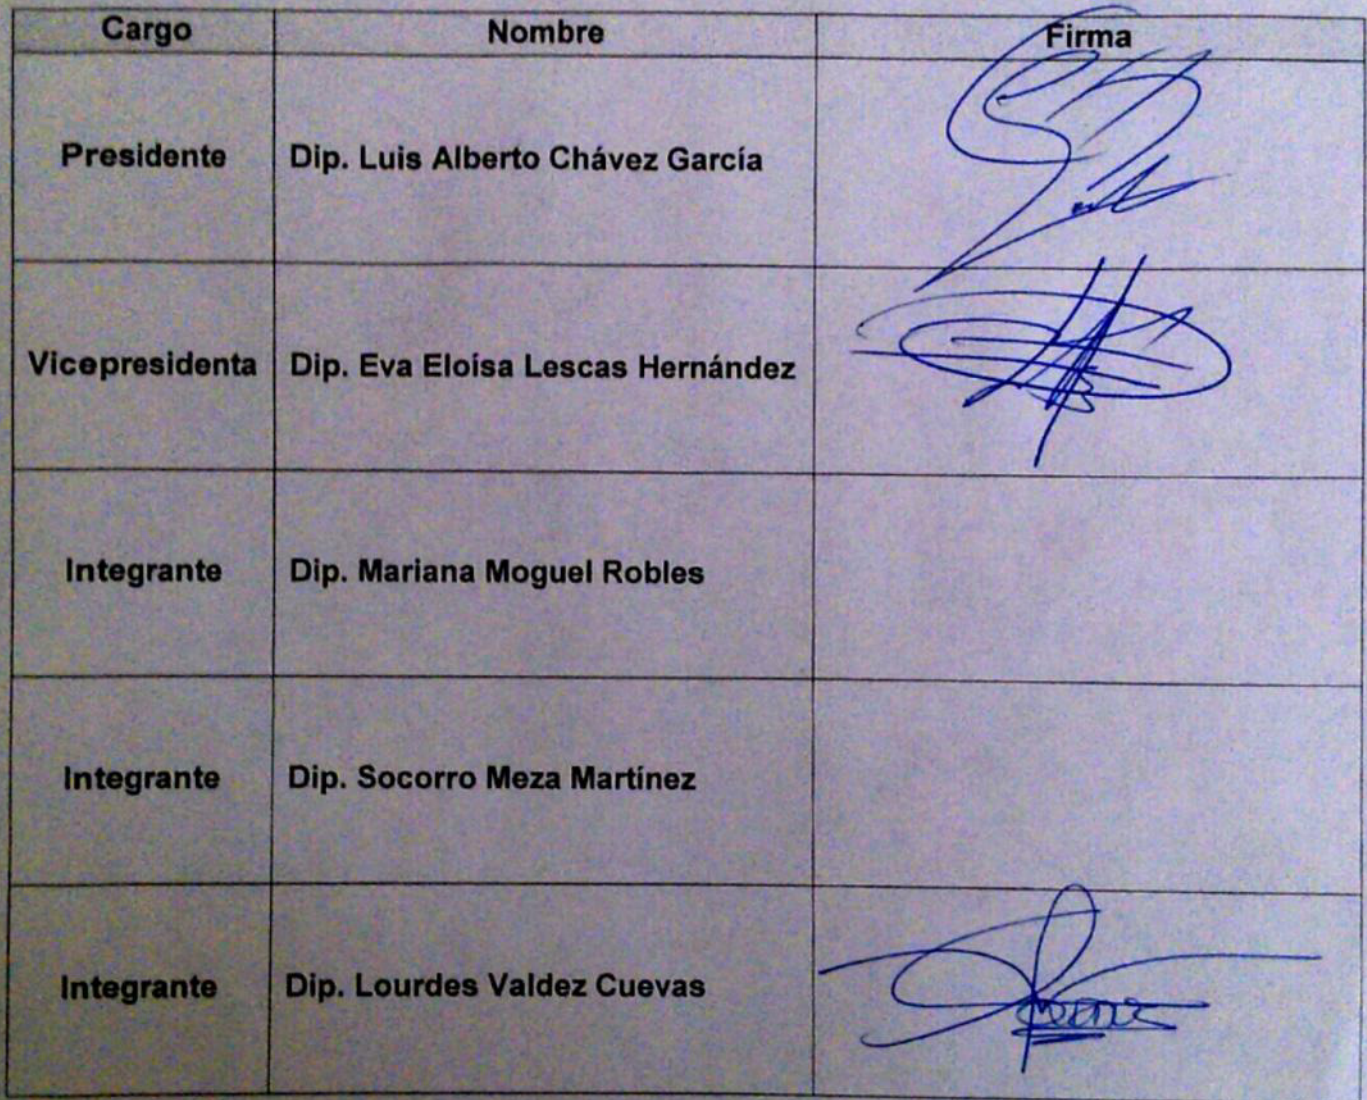 Cargo Nombre Firma
Presidente Dip. Luis Alberto Chávez García
Vicepresidenta Dip. Eva Eloísa Lescas Hernández
Integrante Dip. Mariana Moguel Robles
Integrante Dip. Socorro Meza Martínez
Integrante Dip. Lourdes Valdez Cuevas